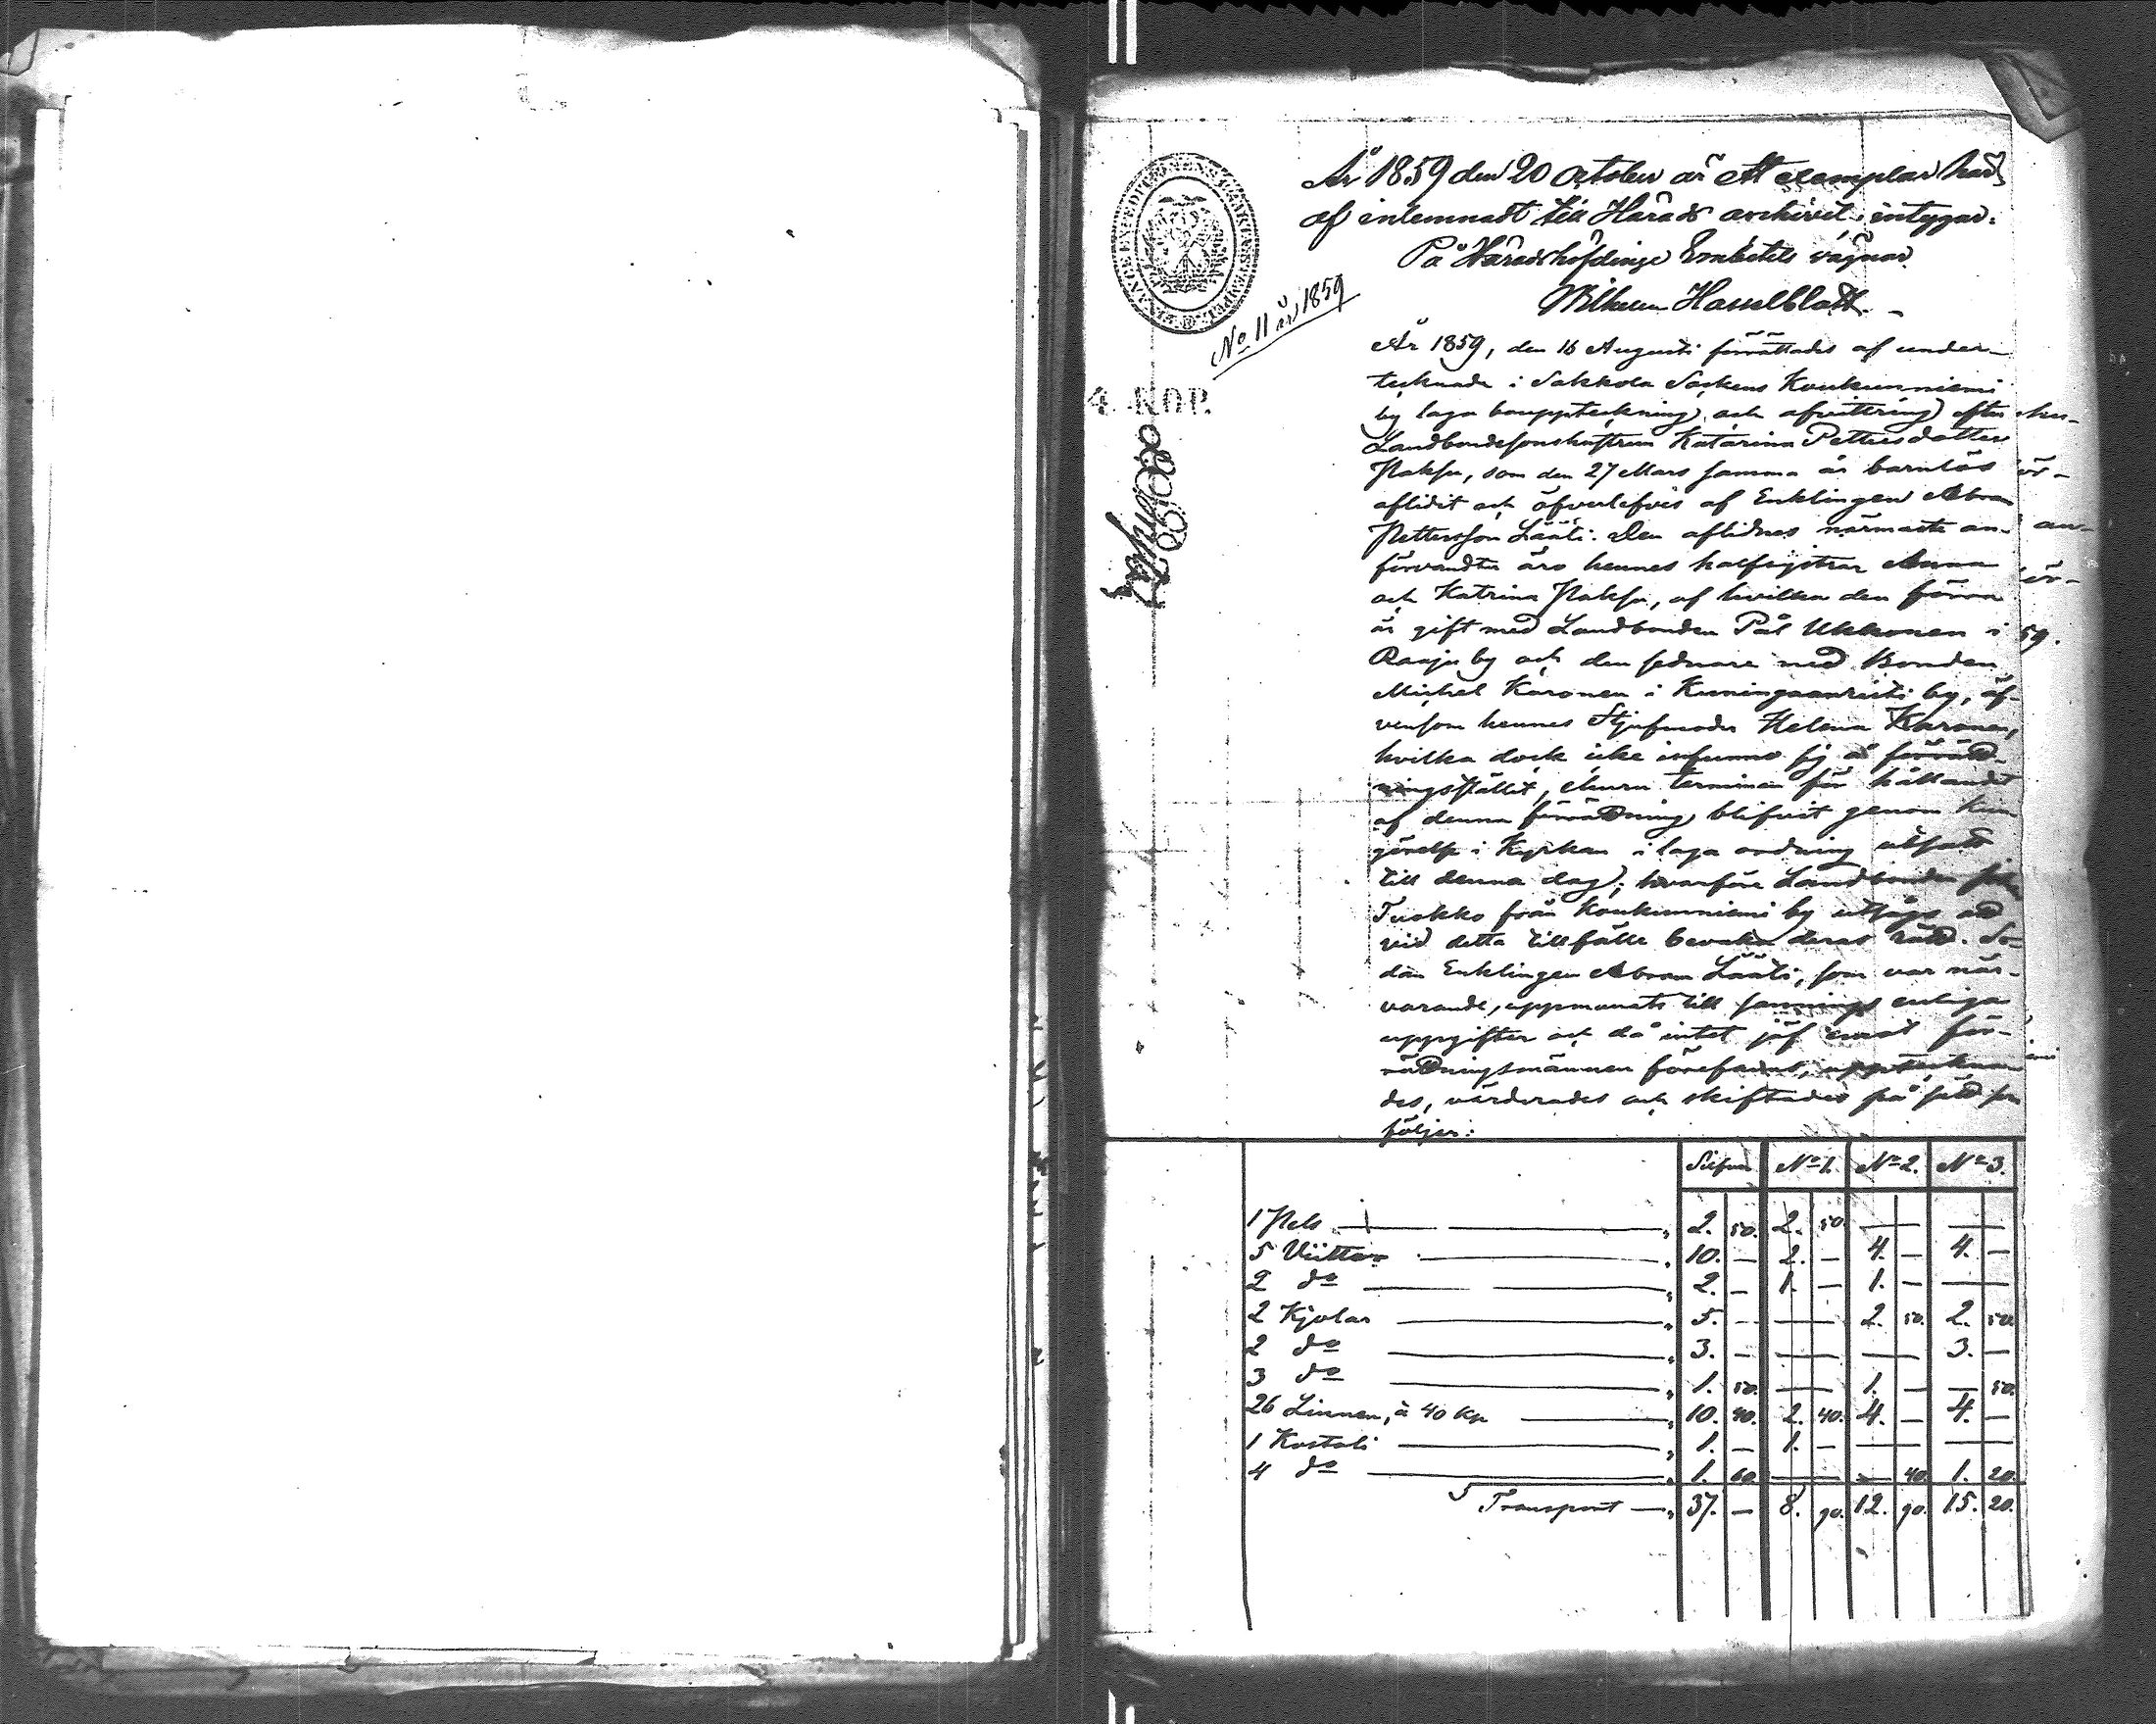 År 1859 den 20 October är ett exemplar här
af inlemnadt till Härads archivet; intygar.
På Häradshöfdinge Embetets vägnar
Wilhelm Hasselblatt.
No 11 år 1859
4 KOP.
År 1859, den 16 Augusti förrättades af under-
tecknade i Sakkola Sockens Koukunniemi
by laga bouppteckning och afvittring efter
Landbondesonshustrun Katarina Pettersdotter
Paksu, som den 27 Mars samma år barnlös
aflidit och öfverlefves af Enklingen Abram
Pettersson Lääti. Den aflidnes närmaste an-
förvandter äro hennes halfsystrar Anna
och Katrina Paksu, af hvilka den förra
är gift med Landbonden Pål Ukkonen i
Raaju by och den sednare med Bonden
Michel Karonen i Kuningaanristi by, äf-
vensom hennes Stjufmoder Helena Karonen,
hvilka dock icke infunno sig å förrätt-
ningsstället, ehuru terminen för hållandet
af denna förrättning blifvit genom kun-
görelse i Kyrkan i laga ordning utsatt
till denna dag; hvarföre Landbonden
Tuokko från Koukunniemi by utsågs att
vid detta tillfälle bevaka deras rätt. Se-
dan Enklingen Abram Lääti, som var när-
varande, uppmanats till sannings enliga
uppgifter och då intet jäf emot för-
rättningsmännen förefanns, upptecknа-
des, värderades och skiftades på sätt som
följer:
Silfver No 1. No 2. No 3.
1 Pels — „ 2. 50. 2. 50. — —
5 Viittor — „ 10. — 2. — 4. — 4. —
2 do — „ 2. — 1. — 1. — —
2 Kjolar — „ 5. — — 2. 50. 2. 50.
2 do — „ 3. — — — 3. —
3 do — „ 1. 50. — 1. — — 50.
26 Linnen, à 40 kp — „ 10. 40. 2. 40. 4. — 4. —
1 Kostoli — „ 1. — 1. — — —
4 do — „ 1. 60. — — 40. 1. 20.
Transport — „ 37. — 8. 90. 12. 90. 15. 20.